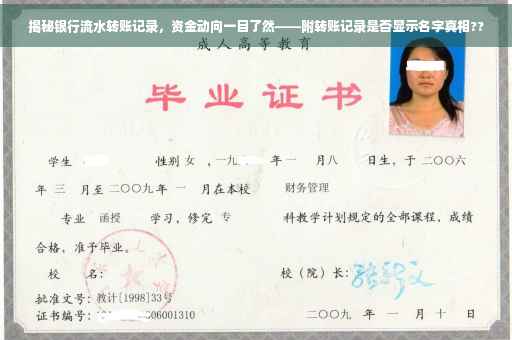 揭秘银行流水转账记录，资金动向一目了然——附转账记录是否显示名字真相??
成人高等教育
毕业证书
学生 性别 女 ，一九 年一 月八 日生，于二〇〇六
年 三 月至二〇〇九年 一 月在本校 财务管理
专业 函授 学习，修完 专 科教学计划规定的全部课程，成绩
合格，准予毕业。
校 名： 校（院）长：
批准文号：教计[1998]33号
证书编号： 06001310 二〇〇九 年 一 月 十 日